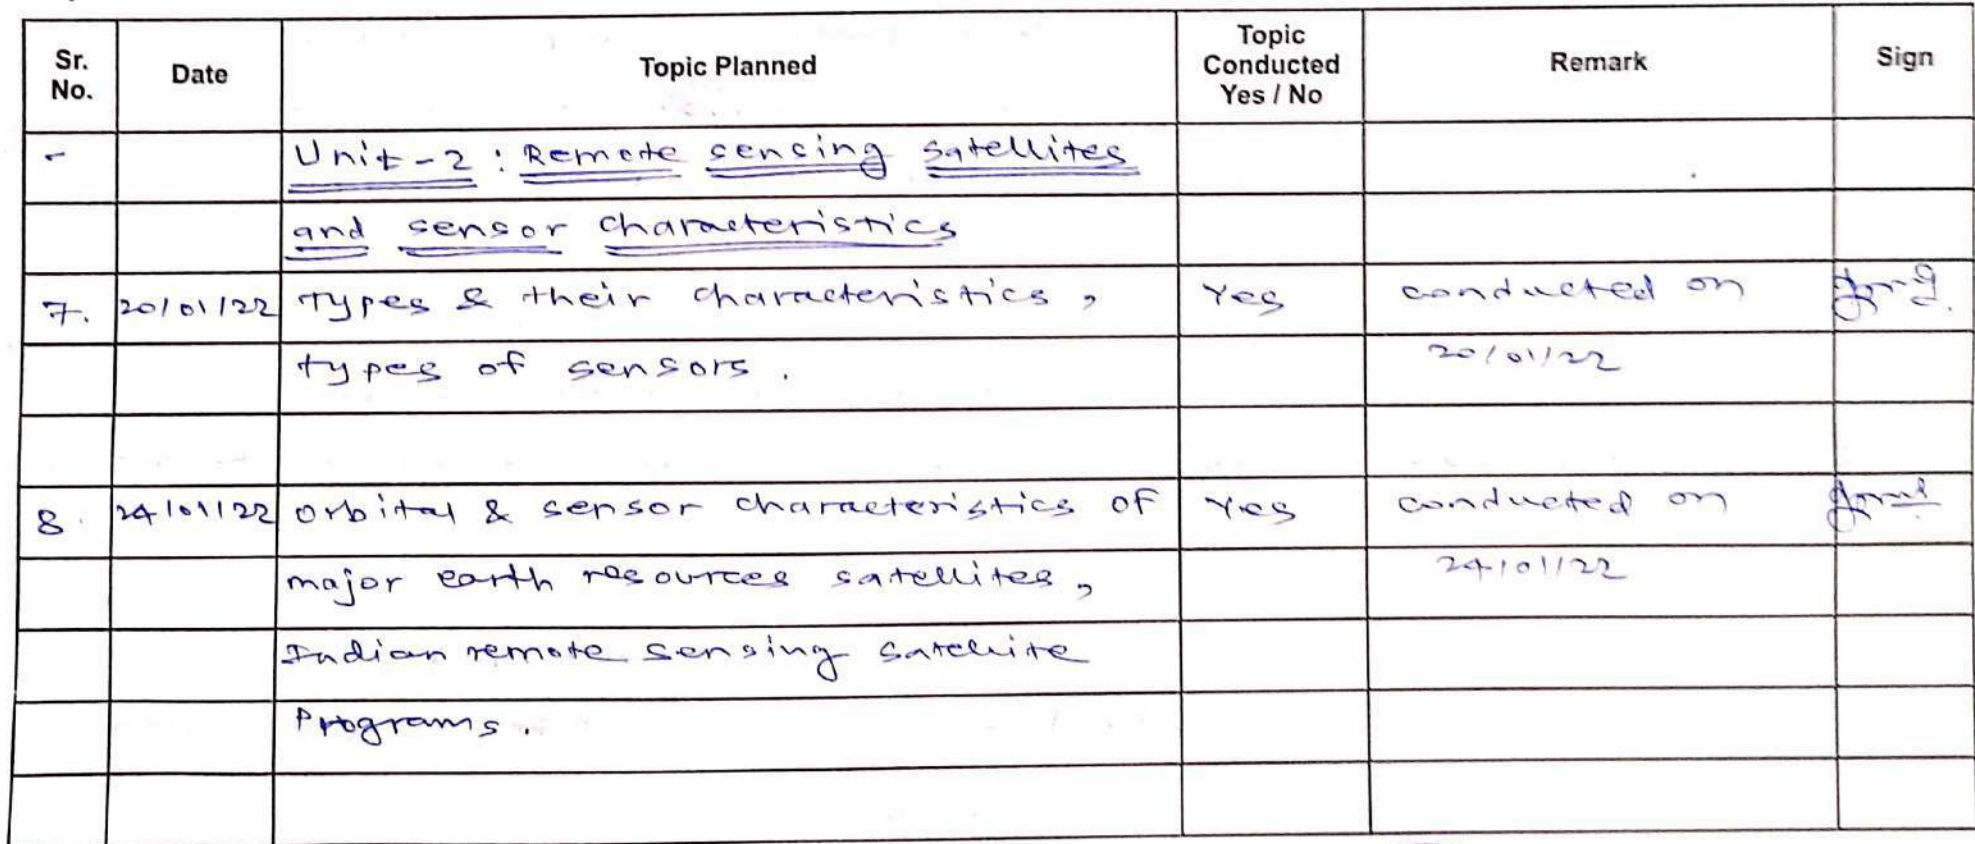 Sr. No. Date Topic Planned Topic Conducted Yes / No Remark Sign
- Unit-2 : Remote sensing satellites
and sensor characteristics
7. 20/01/22 Types & their characteristics, Yes conducted on
types of sensors. 20/01/22
8. 24/01/22 Orbital & sensor characteristics of Yes conducted on
major earth resources satellites, 24/01/22
Indian remote sensing satellite
Programs.